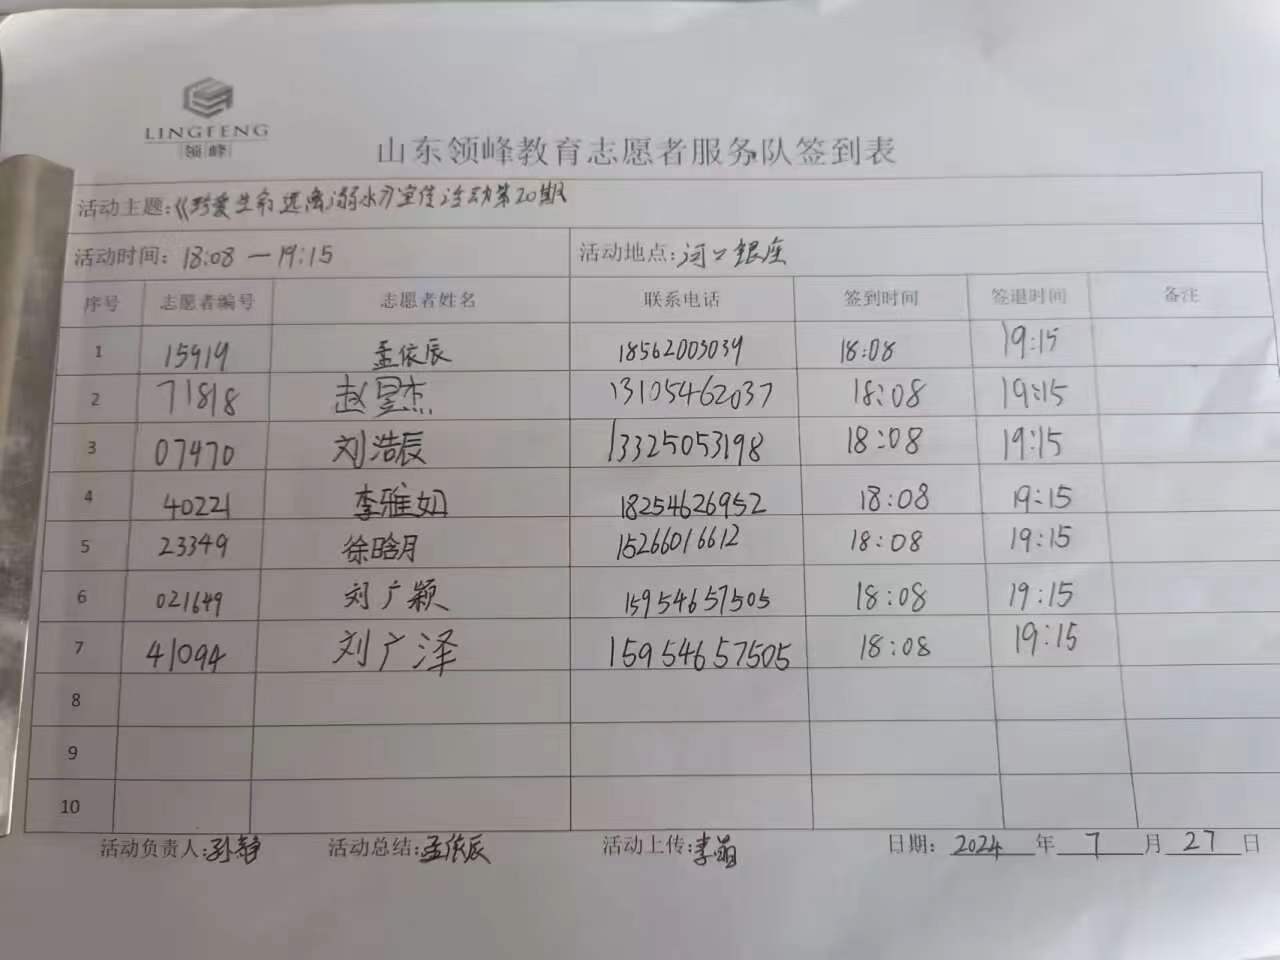 LINGFENG
领峰
山东领峰教育志愿者服务队签到表
活动主题:《珍爱生命远离溺水》宣传活动第20期
活动时间: 18:08 — 19:15 活动地点: 河口银座
序号 志愿者编号 志愿者姓名 联系电话 签到时间 签退时间 备注
1 15919 孟依辰 18562005039 18:08 19:15
2 71818 赵昱杰 13105462037 18:08 19:15
3 07470 刘浩辰 13325053198 18:08 19:15
4 40221 李雅妞 18254626952 18:08 19:15
5 23349 徐晗月 15266016612 18:08 19:15
6 021649 刘广颖 15954657505 18:08 19:15
7 41094 刘广泽 15954657505 18:08 19:15
8
9
10
活动负责人: 孙静 活动总结: 孟依辰 活动上传: 李萌 日期: 2024 年 7 月 27 日